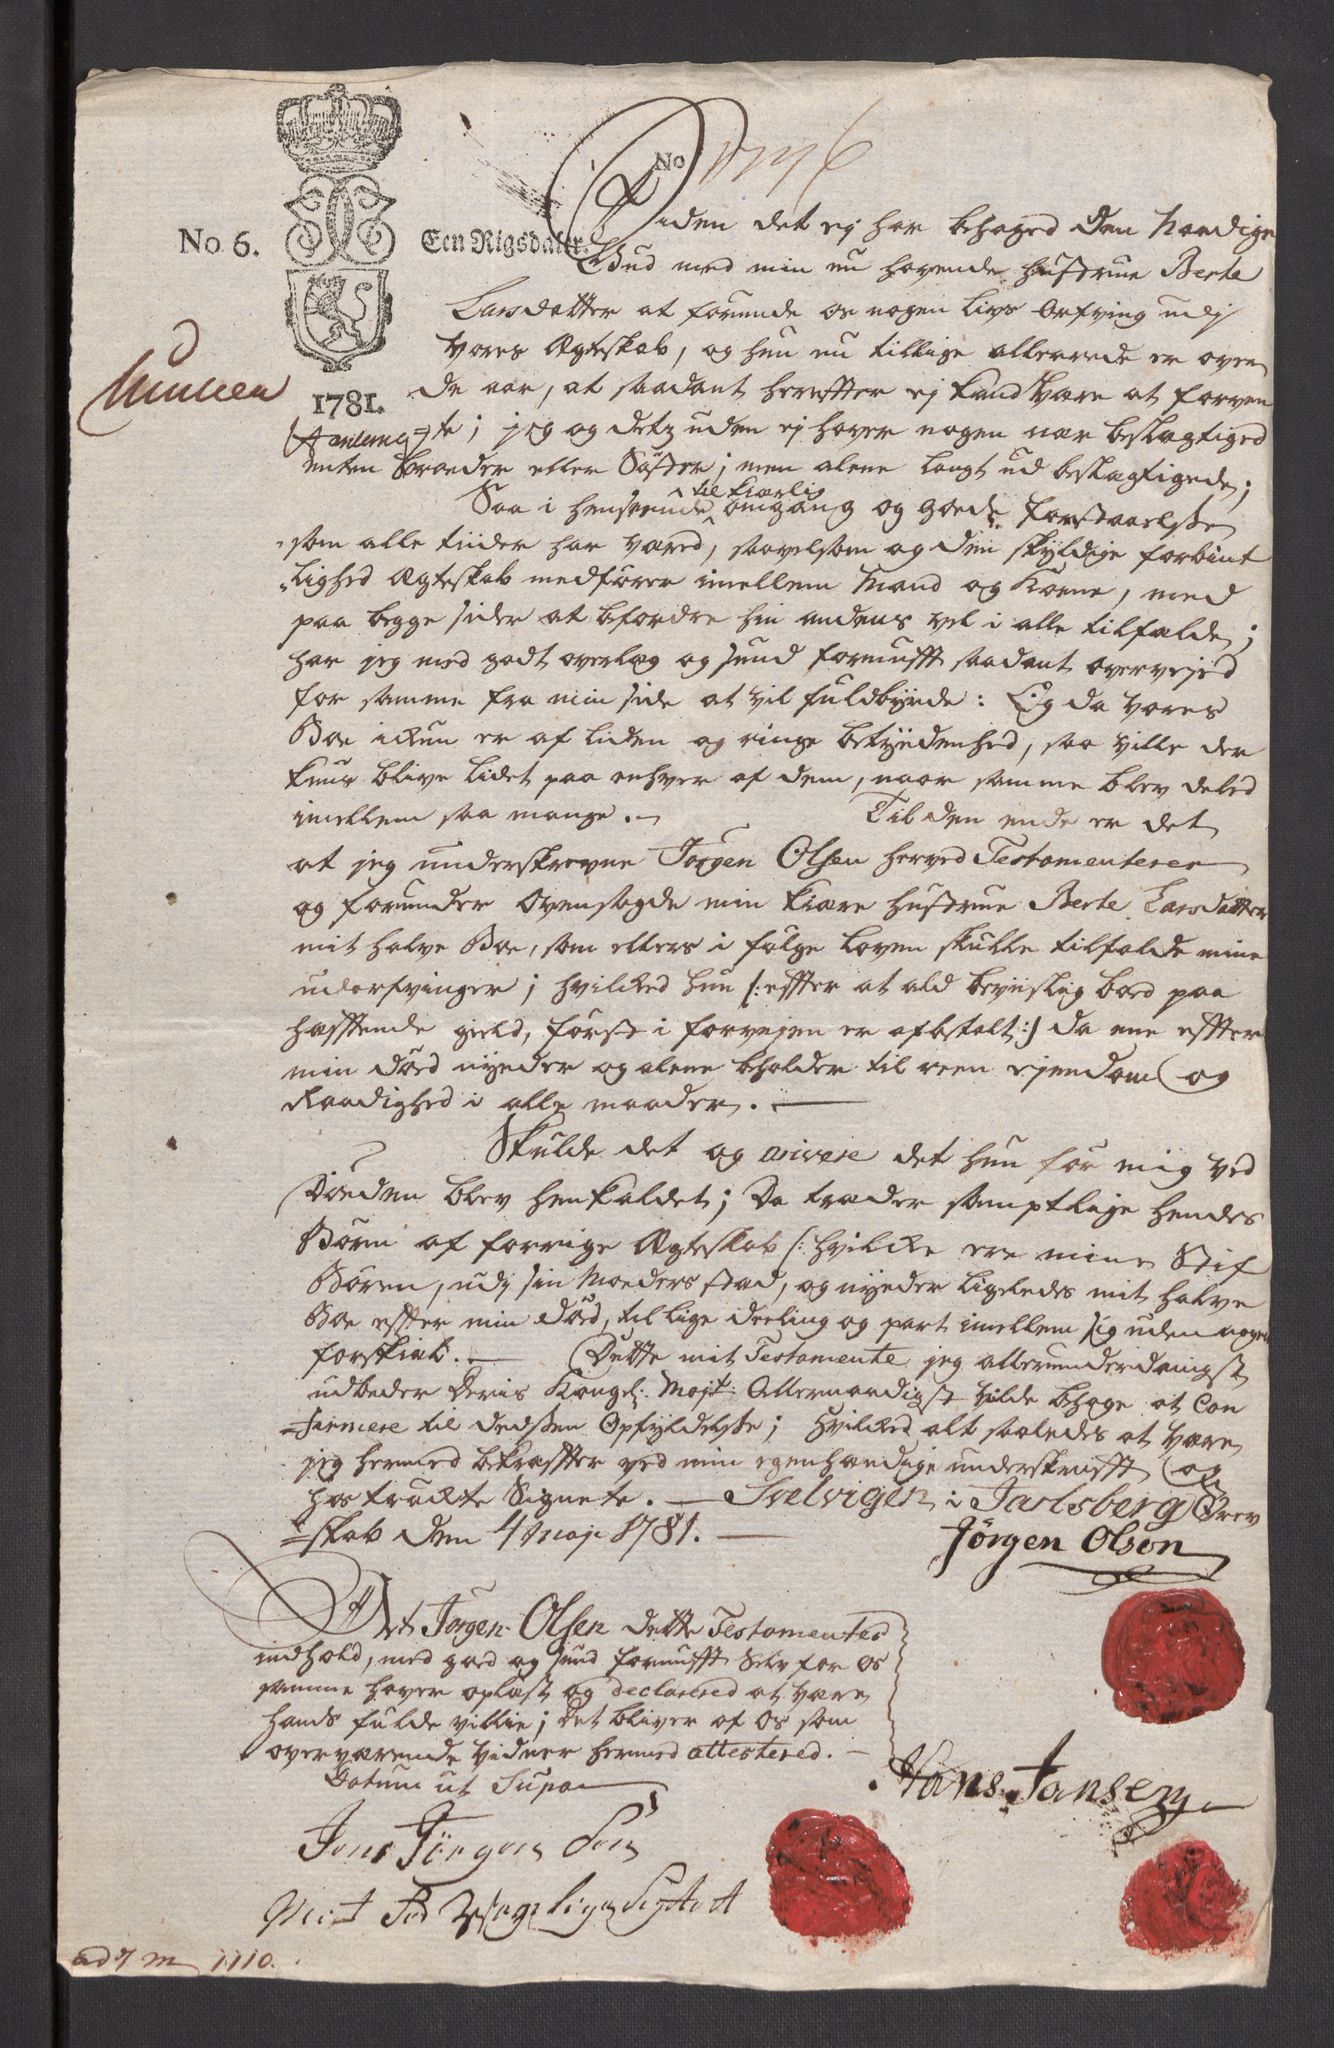 No
No 6. Een Rigsdaler.
1781.
Siden det ej har behaged den Naadige
Gud med min nu havende Hustrue Berte
Larsdatter at forunde os nogen Livs Arfving udj
vores Ægteskab, og hun nu tillige allerrede er oven
de aar, at saadant hereffter ej kand være at forven
te; jeg og desuden ej haver nogen nær beslægtiged
enten Broeder eller Søster; men alene langt ud beslægtigede;
Saa i henseende til kiærlig omgang og goede forstaaelse
som alle tiider har væred, saavelsom og den skyldige forbint
lighed Ægteskab medfører imellem Mand og Kone, med
paa begge sider at befordre hin andens vel i alle tilfælde;
har jeg med godt overlæg og sund fornufft saadant overvejed
for samme fra min side at vil fuldbyrde: Og da vores
Boe ickun er af liden og ringe betydenhed, saa ville der
kuns blive lidet paa enhver af dem, naar samme blev deeled
imellem saa mange. Til den ende er det
at jeg underskrevne Jørgen Olsen herved Testamenterer
og forunder ovensagde min kiære Hustrue Berte Larsdatter
mit halve Boe, som ellers i følge Loven skulle tilfalde mine
udarfvinger; hvilcked hun /: effter at ald beviislig boed paa
hæfftende gield, først i forvejen er afbetalt :/ da ene effter
min død nyder og alene beholder til reen ejendom og
Raadighed i alle maader.
Skulde det og arivere det hun før mig ved
Døden blev henkaldet; Da træder samptlige hendes
Børn af forrige Ægteskab /: hvilcke ere mine Stif
Børn, udj sin Moeders stæd, og nyder ligeledes mit halve
Boe effter min død, til lige deeling og part imellem sig uden nogen
forskiæl. Dette mit Testamente jeg allerunderdanigst
udbeder Deris Kongel: Majt: Allernaadigst vilde behage at Con
firmere til dedssen Opfyldelse; hvilcked alt saaledes at være
jeg hermed bekræffter ved min egenhændige underskrifft og
hostrückte Signete. Svelvigen i Jarlsberg Grev
skab den 4 Maji 1781.
Jørgen Olson
At Jørgen Olsen dette Testamentes
indhold, med goed og sund fornufft selv for os
samme haver oplæst og declarered at være
hands fulde villie; Det bliver af os som
overværende vidner hermed attestered.
Datum ut Supra
Hans Jansen
Jens Jörgen Sen
ad 7 M 1110.